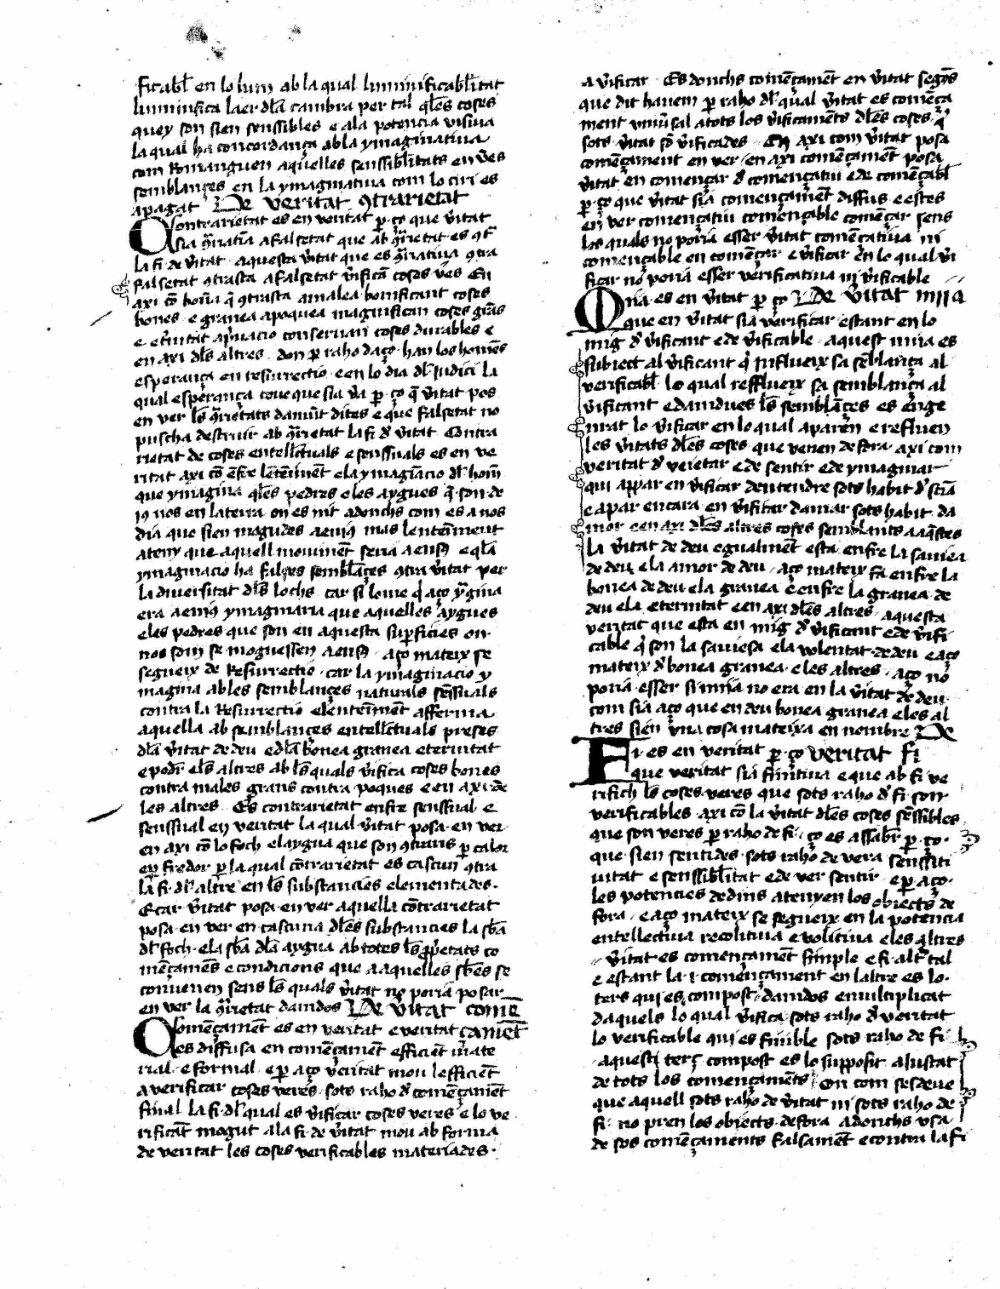 ficabl̃ en lo lum ab la qual luminificablitat
luminifica laer dl̃a cambra per tal ql̃es coses
quey son sien senssibles e ala potencia visiva
la qual ha concordança ab la ymaginativa
com Romanguen aquelles senssiblitats en ṽes
semblançes en la ymaginativa com lo ciri es
apagat De veritat 9trarietat
Contrarietat es en veritat p̱ ço que ṽitat
sia 9̃traria a falsetat que ab 9̃trietat es 9tra
la fi de ṽitat · aquesta ṽitat que es 9̃trariva 9tra
falsetat 9trasta a falsetat ṽifican̄ coses ṽes En
axi cō bonea q̃ 9trasta a malea bonificant coses
bones · e granea a poquea magnifican coses grās
e et̃nitat a p̃vacio conservan coses durables e
en axi dl̃s altres · don p̱ raho daço · han los homēs
esperança en resurrectio · e en lo dia dl̃ judici la
qual esperança cove que sia ṽa p̱ ço q̃ ṽitat pos
en ver les 9̃trietats damūt dites e que falsetat no
puscha destruir ab 9̃trietat la fi d̃ ṽitat Contra
rietat de coses entellectuals e senssuals es en ve
ritat axi cō enfre lentenimēt e la ymagīacio dl̃ homē
que ymagina ql̃es pedres e les aygues q̃ · son de
jus nos en la terra on es nit adonchs com es a nos
dia que sien mogudes a enjus mas lentēniment
ateny que aquell movimēt seria a ensus e ql̃a
ymaginacio ha falses semblāçes 9tra ṽitat per
la diversitat dl̃s lochs · car si lome q̃ aço yṁgina
era a enjus ymaginaria que aquelles aygues
e les pedres que son en aquesta sup̱ficies on
nos som se moguessen a ensus · aço mateix se
segueix de Resurrectio · car la ymaginacio y
magina ab les semblançes naturals senssuals
contra la Resurrectio e lentēniment afferma
aquella ab semblançes entellectuals preses
dl̃a ṽitat de deu e dl̃a bonea granea eternitat
e poder e ls̃ altres ab ls̃ quals ṽifica coses bones
contra males grans contra poques e en axi de
les altres · Es contrarietat enfre senssual e
senssual en veritat la qual ṽitat posa · en ver
en axi cō lo foch e laygua que son 9traris p̱ calor
e p̱ fredor p̱ la qual contrarietat es cascun 9tra
la fi dl̃ altre en ls̃ substancies elementades ·
E car ṽitat posa en ver aquella contrarietat
posa en ver en cascuna dl̃es substancies la sb̃a
dl̃ foch · e la sb̃a dl̃a aygua ab totes ls̃ p̱pietats co
mençamēs e condicions que a aquelles sb̃es se
convenen sens ls̃ quals ṽitat no poria posar
en ver la 9̃trietat damdos De ṽitat come
Començament es en veritat e veritat çament
es diffusa en començament efficient mate
rial · e formal · e p̱ aço ṽeritat mou lefficient
a verificar coses veres · sots raho d̃ començament
final la fi · dl̃ qual es ṽificar coses veres e lo ve
rificant mogut a la fi de ṽitat mou ab forma
de veritat les coses verificables materiades ·
a ṽificar · Es donchs començament en ṽitat segōs
que dit havem p̱ raho dl̃ qual ṽitat es comença
ment uniṽsal a tots los ṽificaments dl̃es coses q̃
sots ṽitat sō ṽificades · En axi com ṽitat posa
començament en ver · en axi començament posa
ṽitat en començar d̃ començatiu e de començabl̃
p̱ ço que ṽitat sia començament diffus e estes
en ver començatiu començable començar sens
los quals no poria esser ṽitat començativa ni
començable en començar e ṽificar en lo qual ṽi
ficar no poria esser verificativa ni ṽificable
Mija es en ṽitat p̱ ço De ṽitat mija
que en ṽitat sia verificar estant en lo
mig d̃ ṽificant e de ṽificable · aquest mija es
subiect al ṽificant q̃ influeix sa semblança al
verificabl̃ · lo qual refflueix sa semblança al
ṽificant e damdues ls̃ semblāçes es enge
nrat lo ṽificar en lo qual aparen e refluen
les ṽitats dl̃es coses que venen de fora · axi com
veritat d̃ vegetar e de sentir e de ymaginar
qui appar en ṽificar dentendre sots habit d̃ sciā
e apar encara en ṽificar damar sots habit · da
mor · e en axi dl̃es altres coses semblants a aq̃stes
la ṽitat de deu egualment esta enfre la saviea
de deu e la amor de deu · aço mateix fa enfre la
bonea de deu e la granea e enfre la granea · de
deu e la eternitat e en axi dl̃es altres · aquesta
veritat que esta en mig d̃ ṽificant e de ṽifi
cable q̃ son la saviesa e la volentat · de deu e aço
mateix d̃ bonea granea · e les altres · aço no
poria esser si mija no era en la ṽitat de deu ·
com sia aço que en deu bonea granea e les al
tres sien una cosa mateixa en nombre De
Fi · es en veritat p̱ ço veritat fi
que veritat sia finitiva e que ab fi ve
rifich ls̃ coses veres que sots raho d̃ fi son
verificables · axi cō la ṽitat dl̃es coses senssibles
que son veres p̱ raho de fi · ço es assaber p̱ ço ·
que sien sentides · sots raho de vera senssiti
vitat e senssiblitat e de ver sentir · e p̱ aço ·
les potencies de dins atenyen los obiects de
fora · e aço mateix se segueix en la potencia
entellectiva recolitiva e volitiva e les altres
· ṽitat es començament simple e fi · altr̃ tal
e estant la · i · començament en laltre es lo ·
ters qui es compost · damdos e multiplicat
daquels lo qual ṽifica sots raho d̃ veritat
lo verificable qui es finible sots raho de fi ·
· aquest ters compost es lo supposit aiustat
de tots los començaments · On com sesdeve
que aquell sots raho de ṽitat ni sots raho de
fi · no pren los obiects · defora adonchs usa ·
de sos començaments falsament e contra la fi